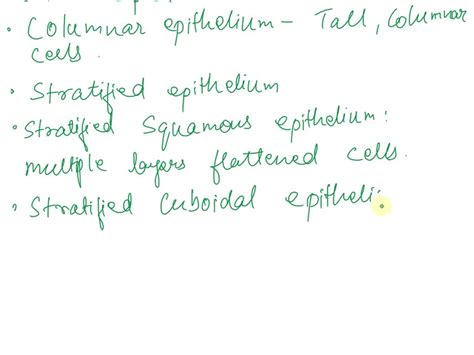 • Columnar epithelium – Tall, Columnar
cells.
• Stratified epithelium
• Stratified Squamous epithelium:
multiple layers flattened cells.
• Stratified Cuboidal epitheli